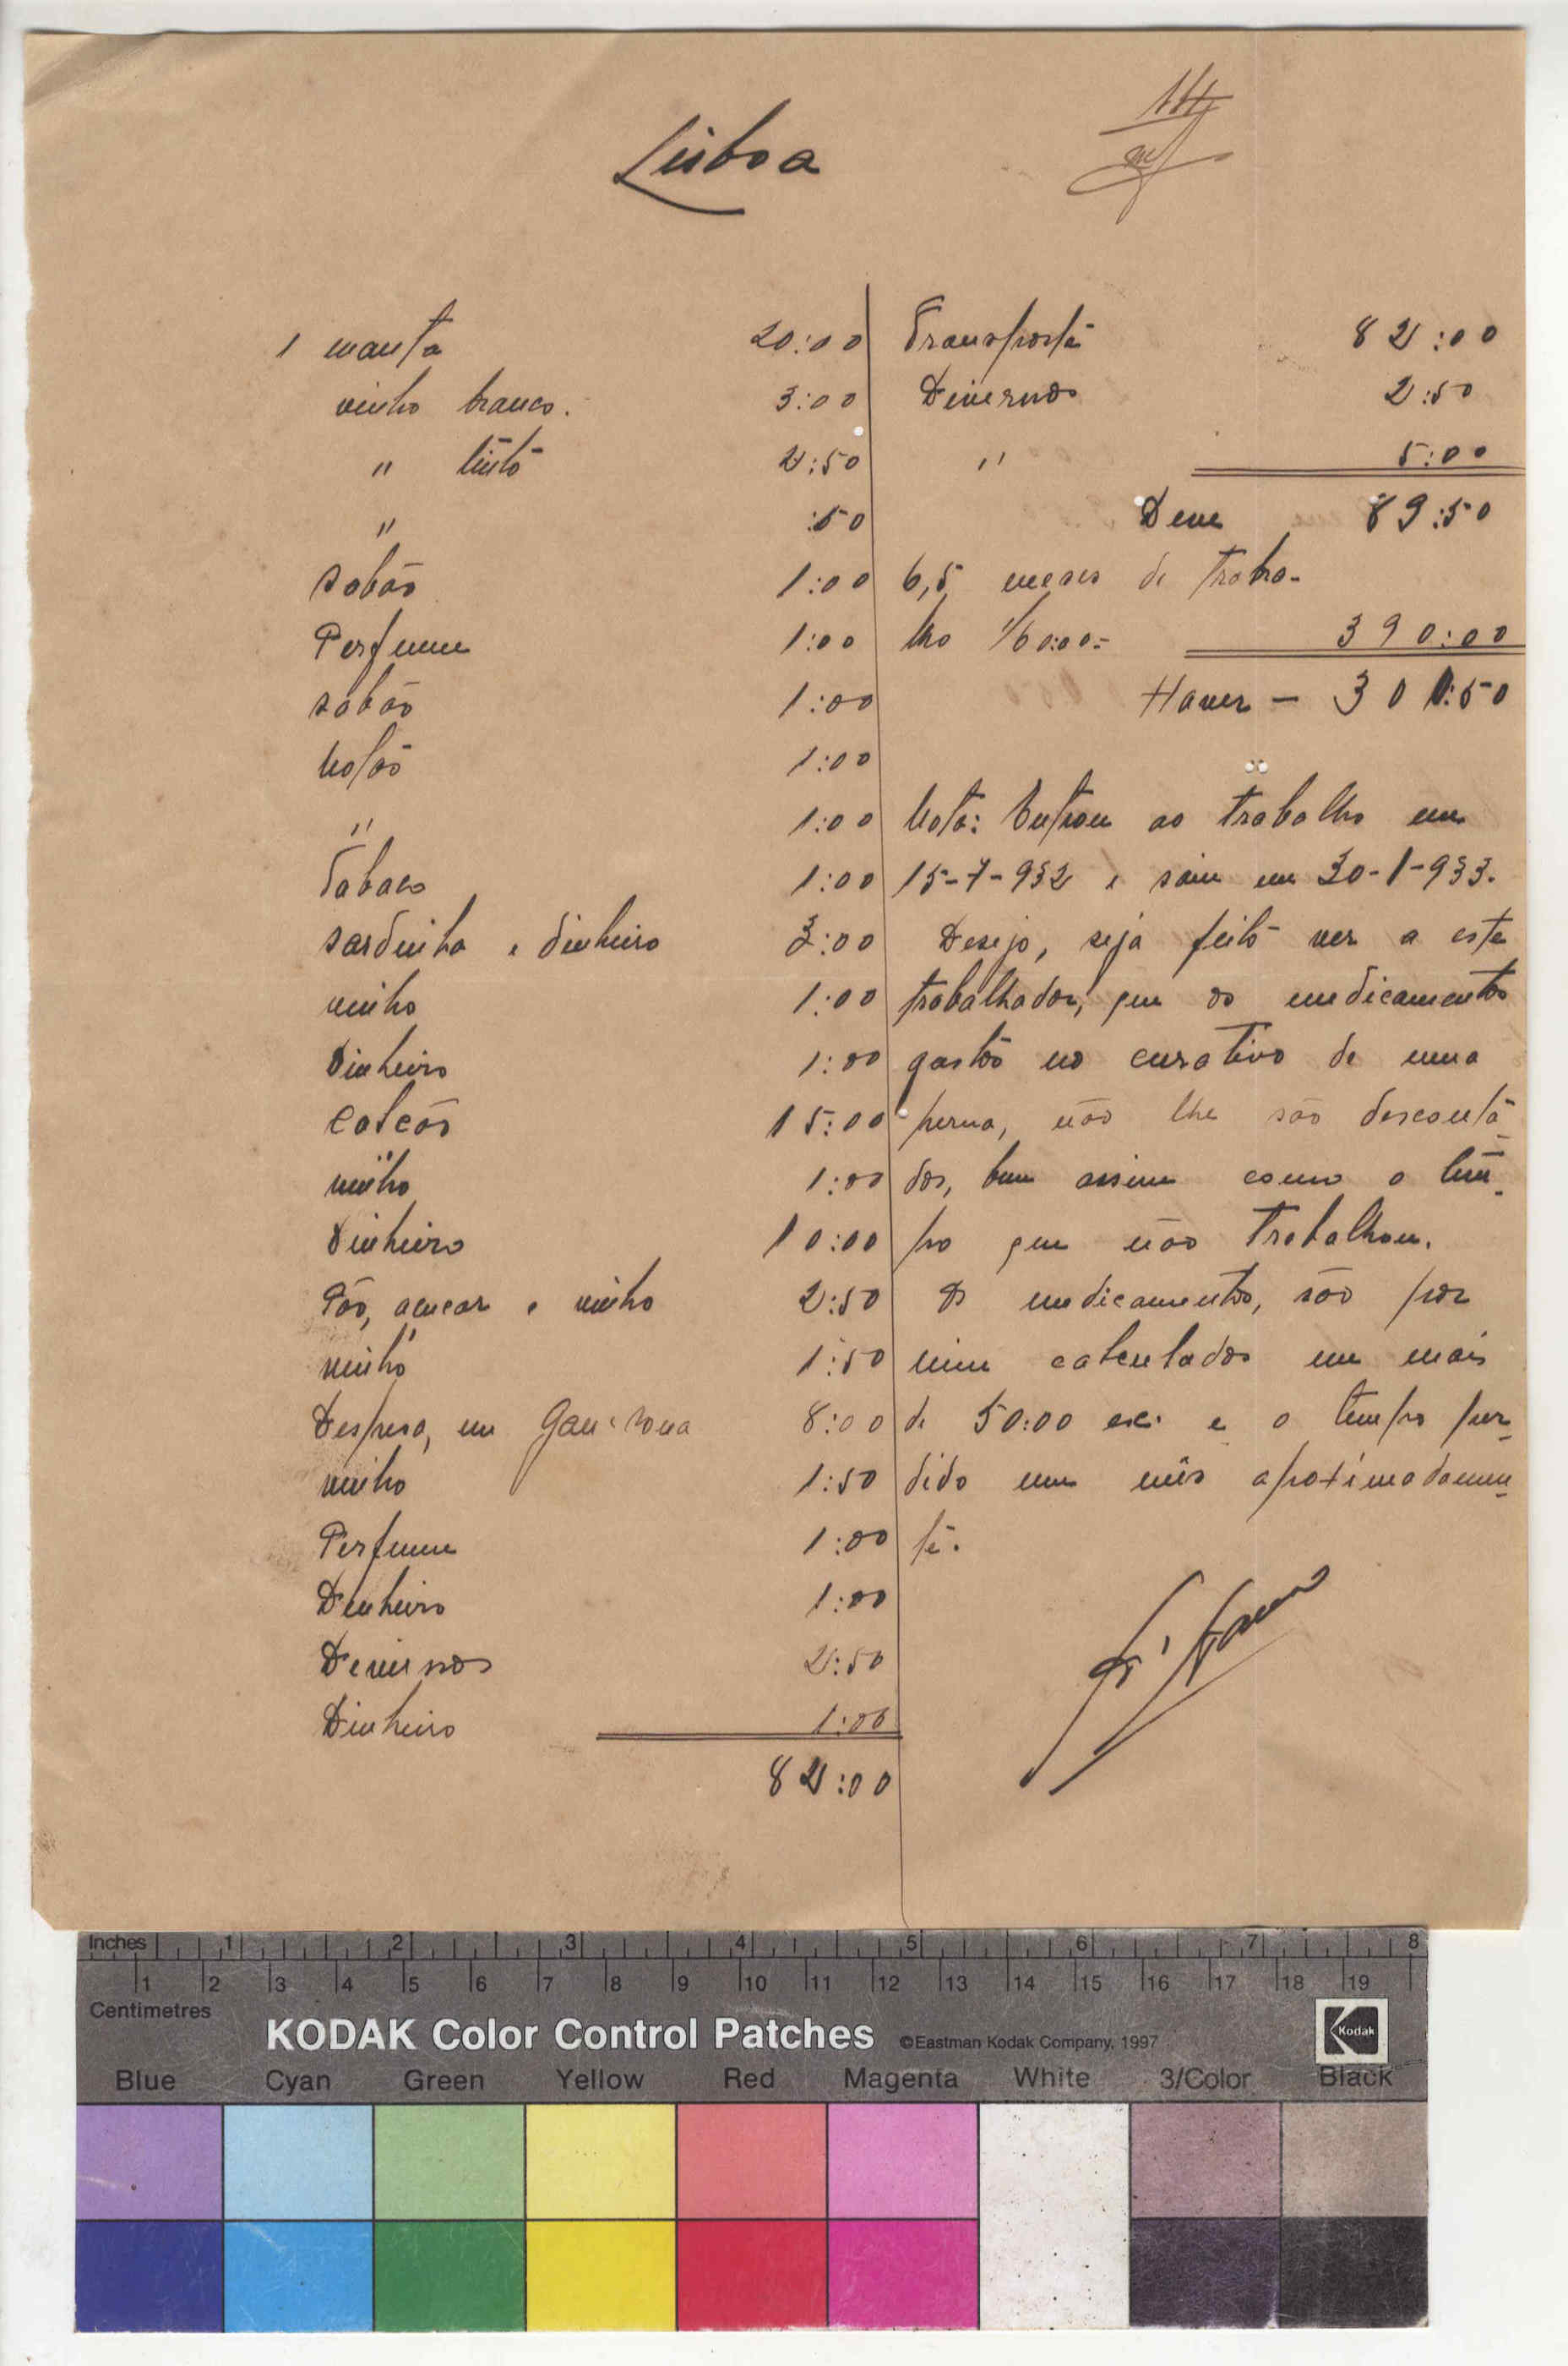 Lisboa
1 manta 20:00
vinho branco. 3:00
" tinto 2:50
" :50
sabão 1:00
Perfume 1:00
sabão 1:00
1:00
" 1:00
Tabaco 1:00
sardinha e dinheiro 3:00
vinho 1:00
Dinheiro 1:00
Calção 15:00
vinho 1:00
Dinheiro 10:00
Pão, acucar e vinho 2:50
vinho 1:50
Despesa, em 8:00
vinho 1:50
Perfume 1:00
Dinheiro 1:00
Diversos 2:50
Dinheiro 1:00
82:00
Transporte 82:00
Diversos 2:50
" 5:00
Deve 89:50
6,5 meses de traba-
lho 390:00
Haver - 300:50
Nota: Entrou ao trabalho em
15-7-932 e saiu em 30-1-933.
Desejo, seja feito ver a este
trabalhador, que os medicamentos
gastos no curativo de uma
perna, não lhe são desconta-
dos, bem assim como o tem-
po que não trabalhou.
Os medicamentos, são por
mim calculados em mais
de 50:00 esc. e o tempo per-
dido um mês aproximadamen-
te.
Inches 1 2 3 4 5 6 7 8
1 2 3 4 5 6 7 8 9 10 11 12 13 14 15 16 17 18 19
Centimetres
KODAK Color Control Patches ©Eastman Kodak Company, 1997 Kodak
Blue Cyan Green Yellow Red Magenta White 3/Color Black